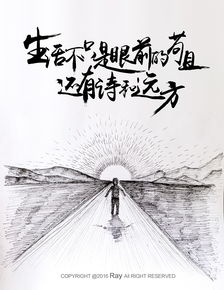 生活不只是眼前的苟且
还有诗和远方
COPYRIGHT @2016 Ray All RIGHT RESERVED